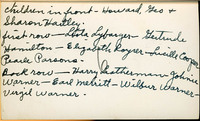 Children in front - Howard, Geo &
Sharon Hartley.
first row - Lybarger - Gertrude
Hamilton - Elizabeth Rayner - Lucille Cooper
Pearle Parsons.
Back row - Harry Leatherman - Johnie
Warner - Earl Merritt - Wilbur Warner -
Virgil Warner -